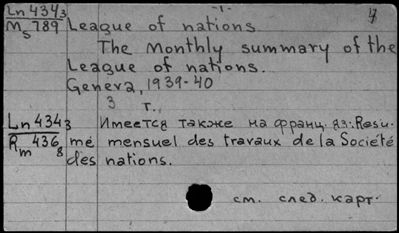 -1-
Ln 4343
Ms 789 League of nations. 4
The Monthly summary of the
League of nations.
Geneva, 1939-40
3 т.
Ln 4343 Имеется также на франц. яз.: Resu-
Rm 436 mé mensuel des travaux de la Société
8 des nations.
см. след. карт.